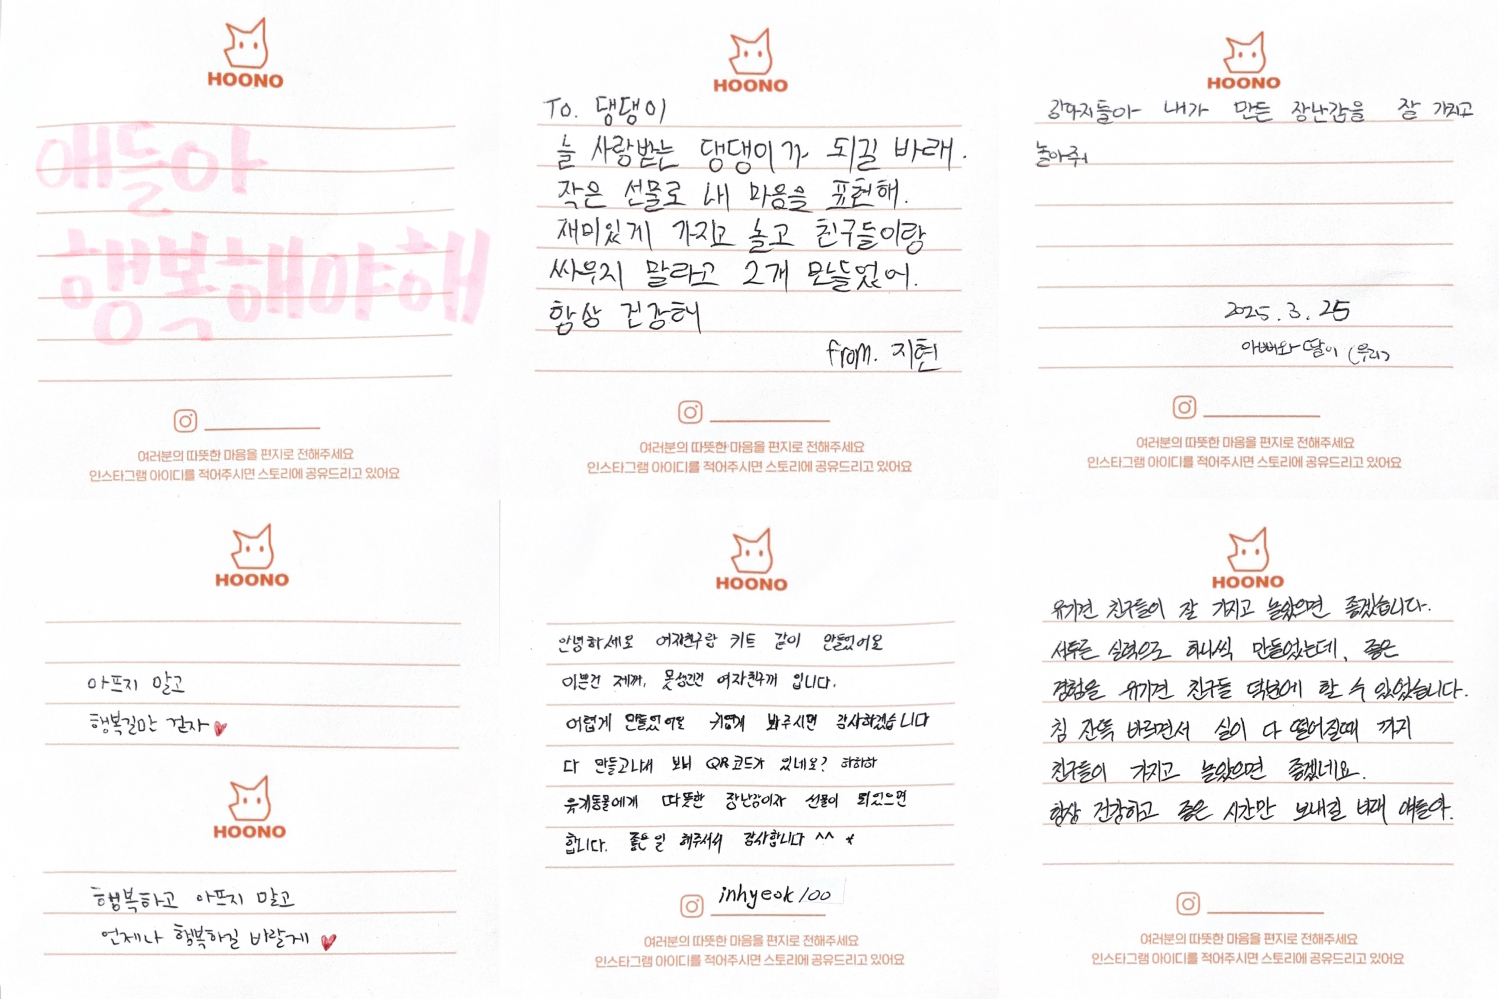 HOONO
애들아
행복해야해
여러분의 따뜻한 마음을 편지로 전해주세요
인스타그램 아이디를 적어주시면 스토리에 공유드리고 있어요
HOONO
To. 댕댕이
늘 사랑받는 댕댕이가 되길 바래.
작은 선물로 내 마음을 표현해.
재미있게 가지고 놀고 친구들이랑
싸우지 말라고 2개 만들었어.
항상 건강해
from. 지현
여러분의 따뜻한 마음을 편지로 전해주세요
인스타그램 아이디를 적어주시면 스토리에 공유드리고 있어요
HOONO
강아지들아 내가 만든 장난감을 잘 가지고
놀아줘
2025.3.25
아빠와 딸이 (우리)
여러분의 따뜻한 마음을 편지로 전해주세요
인스타그램 아이디를 적어주시면 스토리에 공유드리고 있어요
HOONO
아프지 말고
행복길만 걷자
HOONO
행복하고 아프지 말고
언제나 행복하길 바랄게
HOONO
안녕하세요 여자친구랑 키트 같이 만들었어요
이쁜건 제꺼, 못생긴건 여자친구꺼 입니다.
어렵게 만들었어요 귀엽게 봐주시면 감사하겠습니다
다 만들고나서 보니 QR코드가 있네요? 하하하
유기동물에게 따뜻한 장난감이자 선물이 되었으면
합니다. 좋은일 해주셔서 감사합니다 ^^
inhyeok100
여러분의 따뜻한 마음을 편지로 전해주세요
인스타그램 아이디를 적어주시면 스토리에 공유드리고 있어요
HOONO
유기견 친구들이 잘 가지고 놀았으면 좋겠습니다.
서투른 실력으로 하나씩 만들었는데, 좋은
경험을 유기견 친구들 덕분에 할 수 있었습니다.
침 잔뜩 바르면서 실이 다 떨어질때 까지
친구들이 가지고 놀았으면 좋겠네요.
항상 건강하고 좋은 시간만 보내길 바래 얘들아.
여러분의 따뜻한 마음을 편지로 전해주세요
인스타그램 아이디를 적어주시면 스토리에 공유드리고 있어요